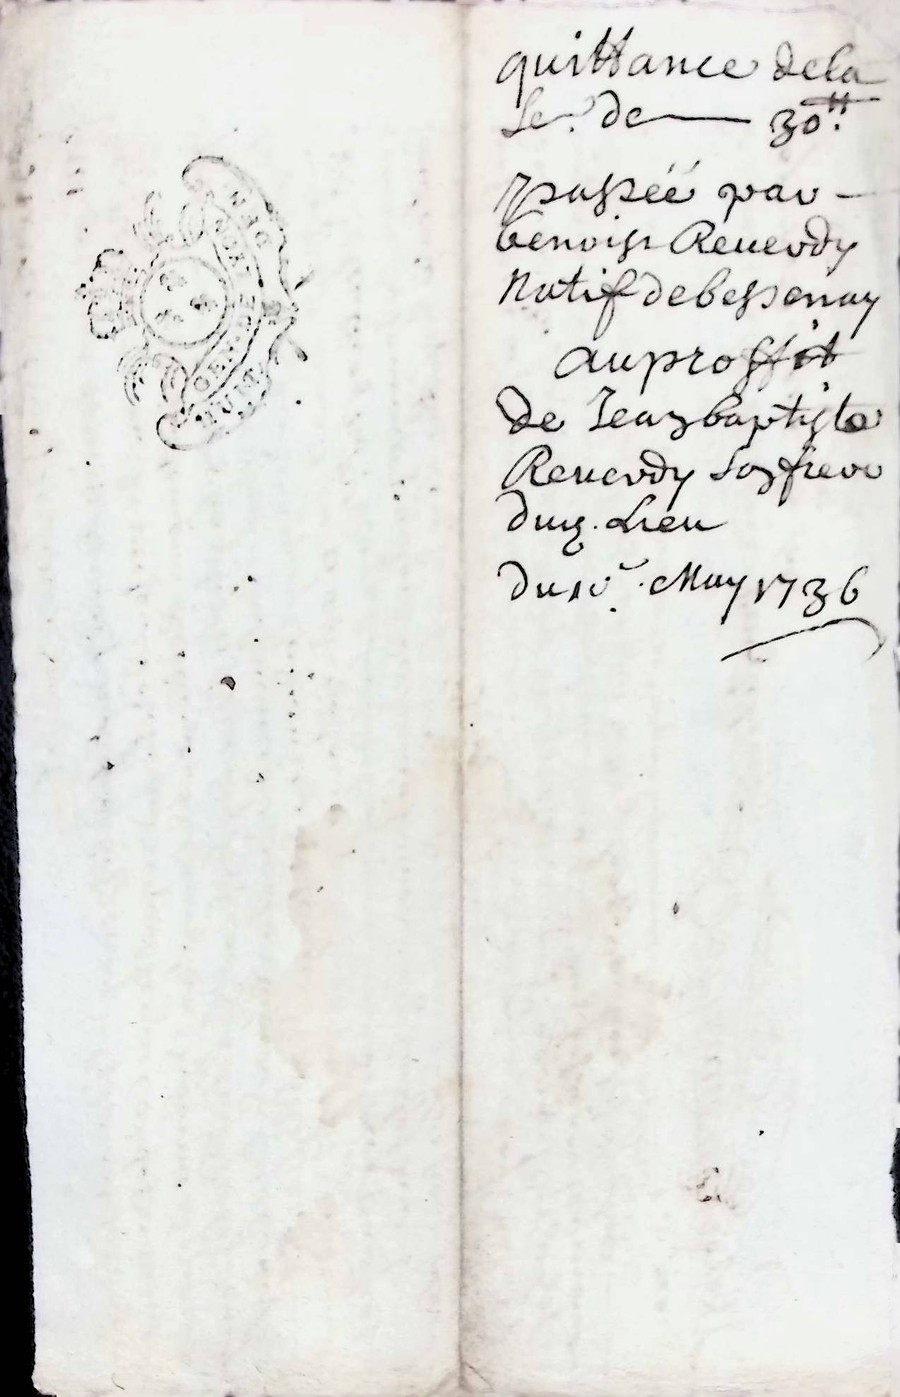 quittance de la
Se.e de — 30.tt
passéé par —
benoist Reuerdy
Natif de bessenay
au proffit
de Jean baptiste
Reuerdy son frere
du m. Lieu
du 10.e May 1736